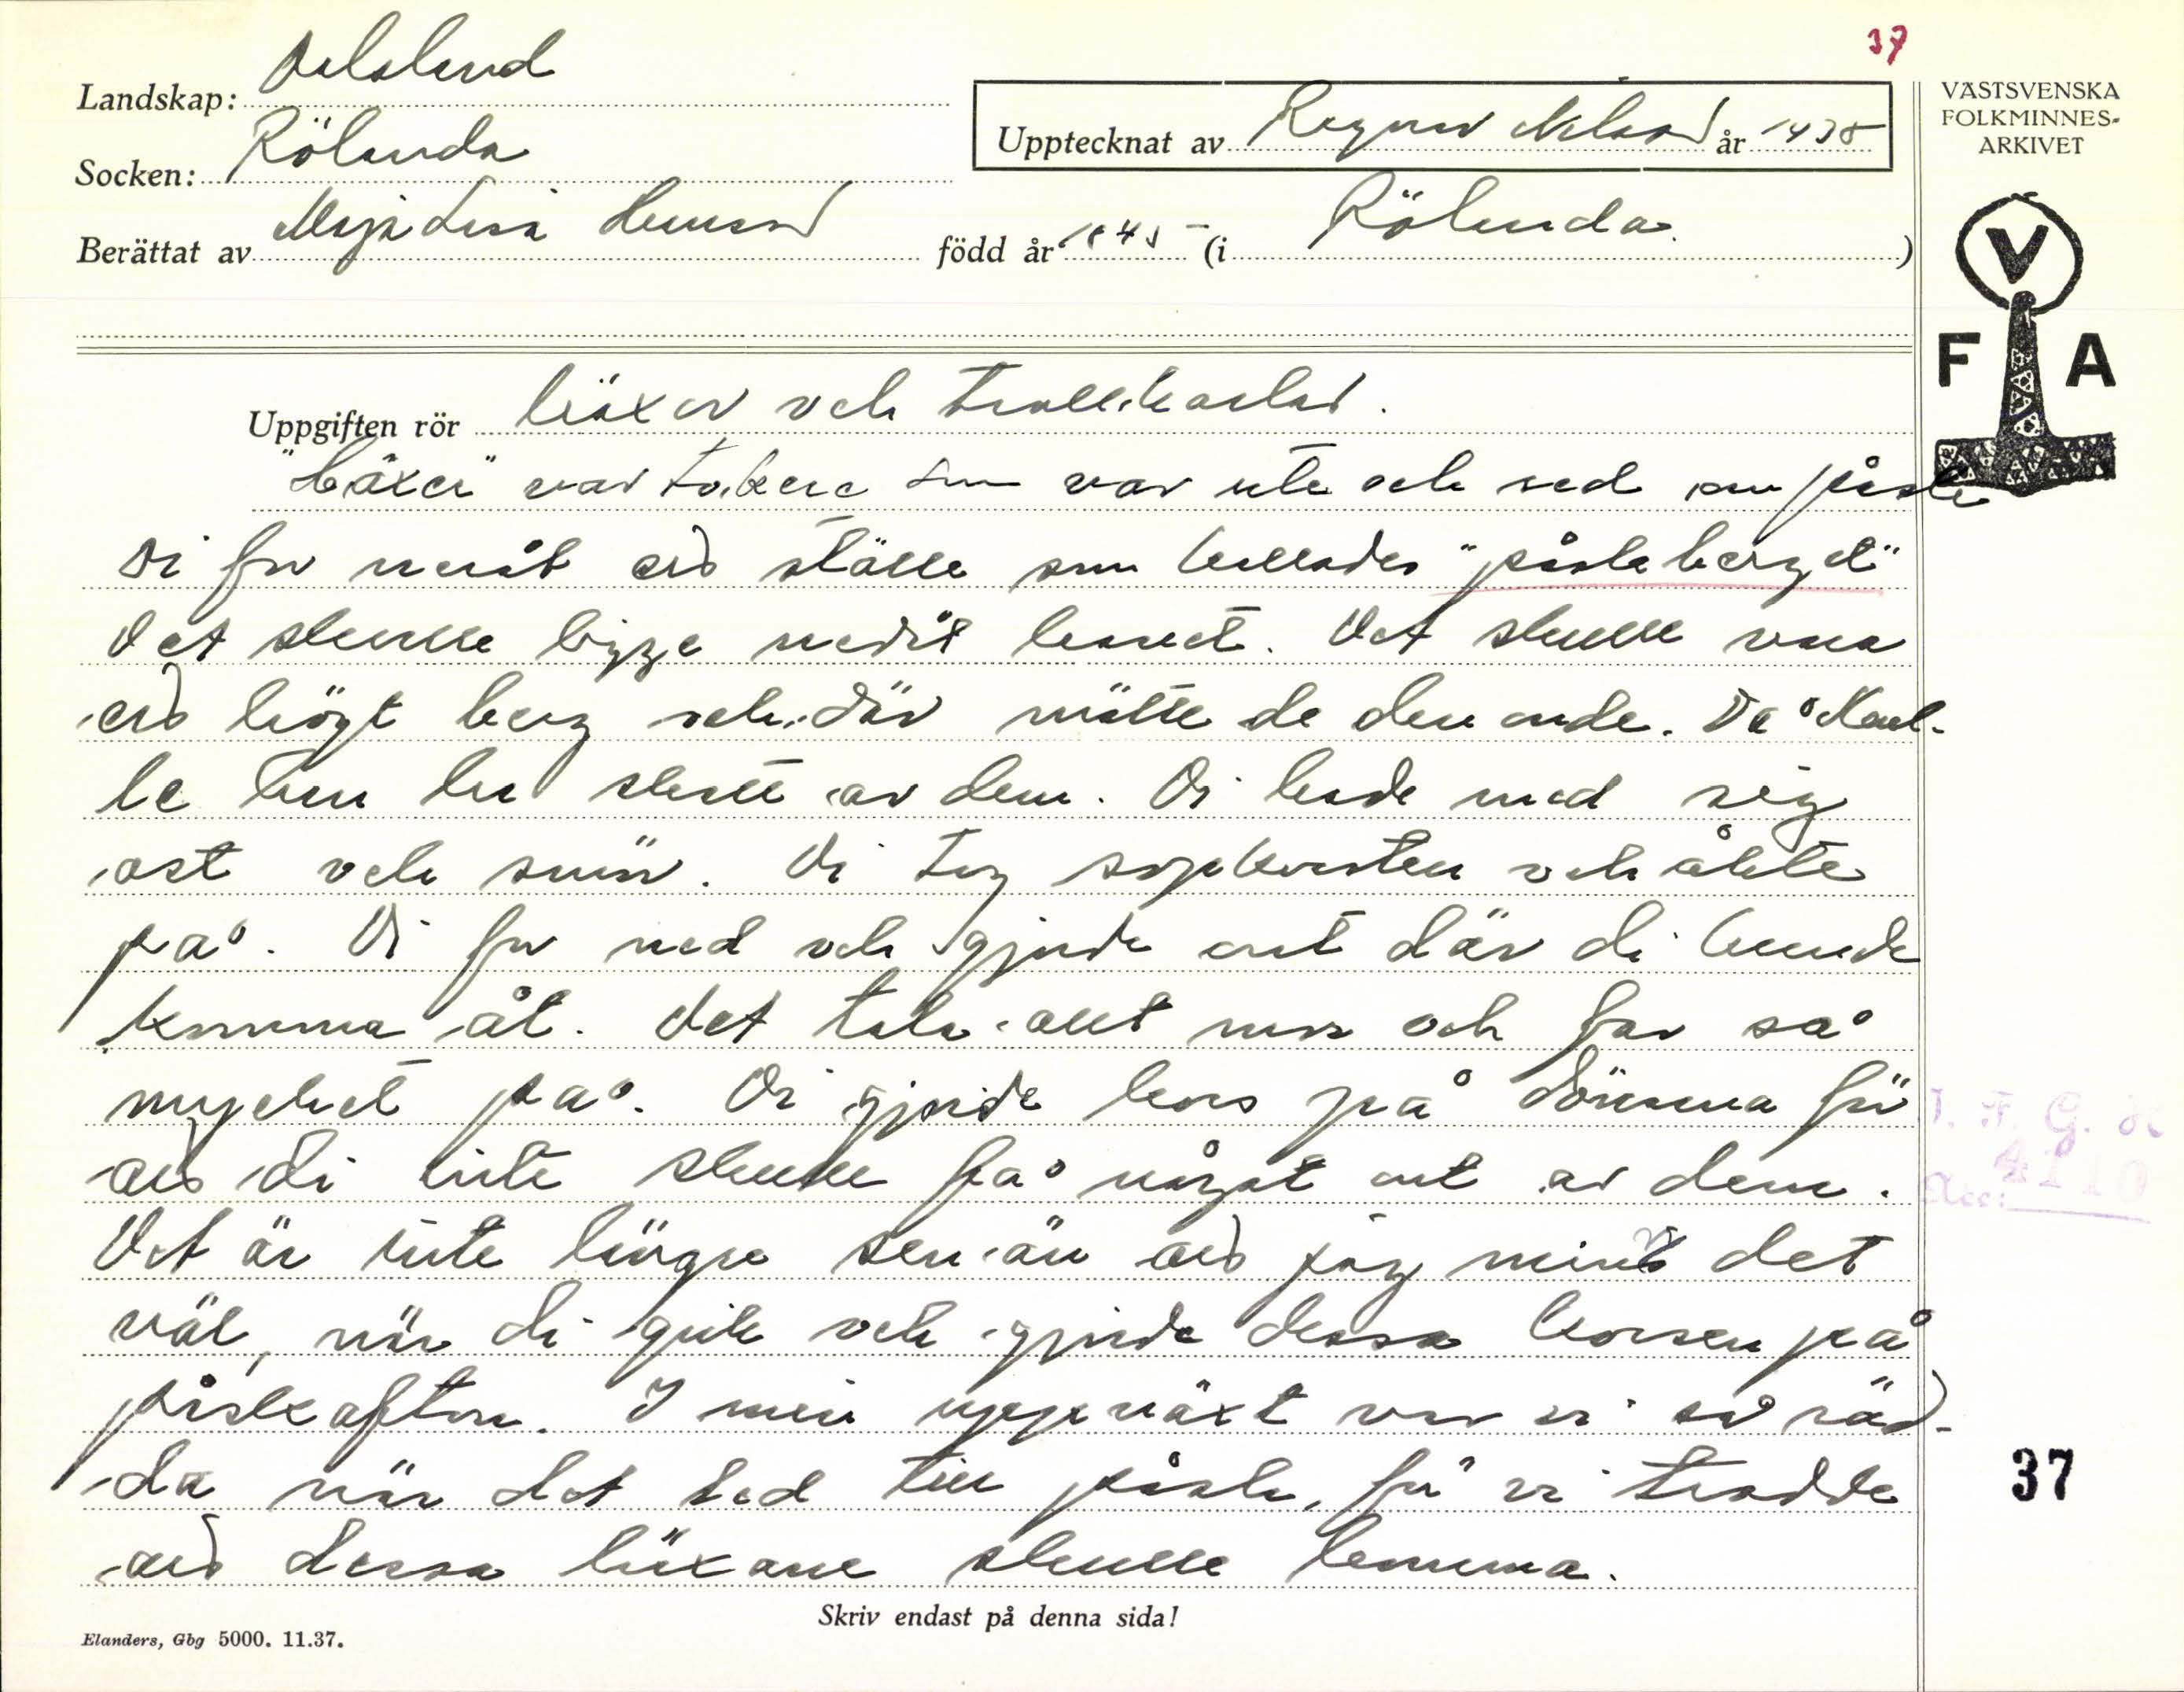 37
Landskap: Dalsland
Socken: Rölanda
Upptecknat av Ragnar Nilsson år 1938
Berättat av Maja Lisa född år 184 (i Rölanda.)
VÄSTSVENSKA
FOLKMINNES-
ARKIVET
V
F A
Uppgiften rör häxor och trollkarlar.
"Häxer" var tokera som var ute och red om påsk
Di for neråt ett ställe som kallades "påskaberget"
Det skulle ligga nedåt havet. Det skulle vara
ett högt berg och där mötte de den onde. Då kal-
le han ha skatt av dem. Di hade med sig
ost och smör. Di tog sopkvasten och åkte
på. Di for ned och gjorde ont där di kunde
komma åt. Det tala allt mor och far så
mycket på. Di gjorde kors på dörrarna för
att di inte skulle få något ont av dem.
Det är inte längre sen än att jag minns det
väl, när di gick och gjorde dessa korsen på
påskafton. I min uppväxt var vi så räd-
da när det led till påsk, för vi trodde
att dessa häxane skulle komma.
J. F. G. H
Acc: 4110
37
Skriv endast på denna sida!
Elanders, Gbg 5000. 11.37.